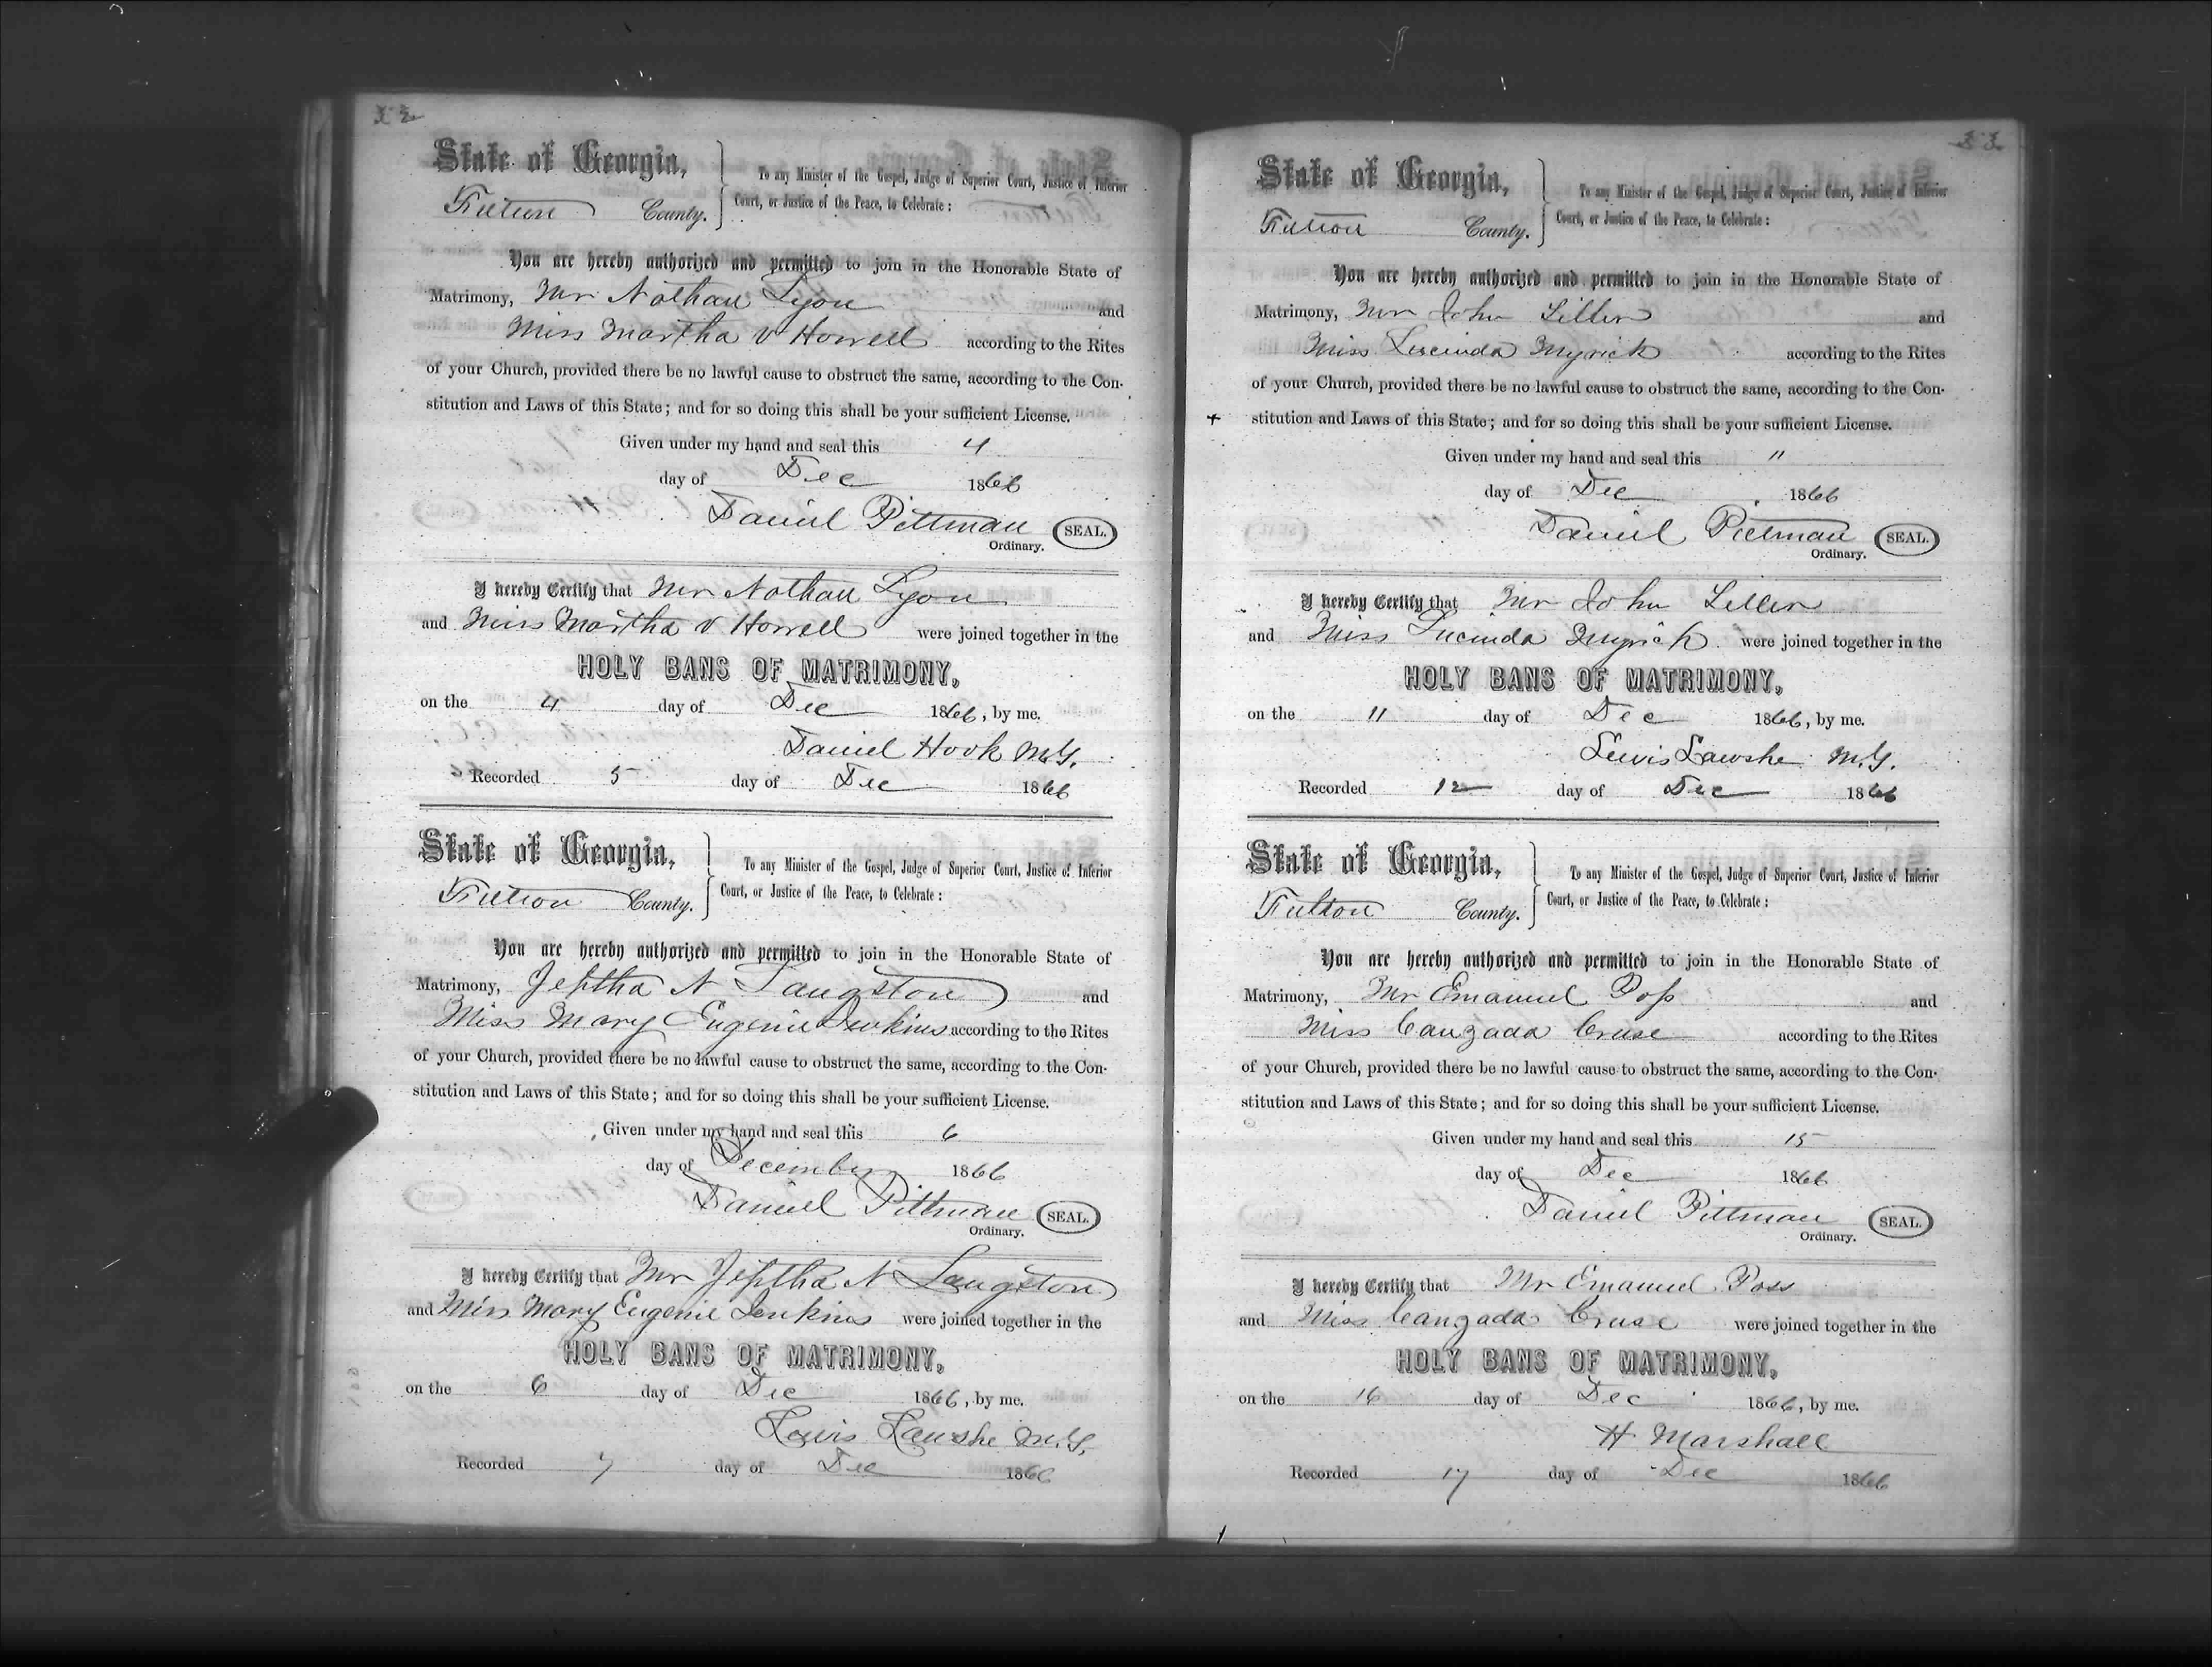 State of Georgia,
Fulton County.
To any Minister of the Gospel, Judge of Superior Court, Justice of Inferior
Court, or Justice of the Peace, to Celebrate :
You are hereby authorized and permitted to join in the Honorable State of
Matrimony, Mr Nathan Lyon and
Miss Martha V Howell according to the Rites
of your Church, provided there be no lawful cause to obstruct the same, according to the Con-
stitution and Laws of this State; and for so doing this shall be your sufficient License.
Given under my hand and seal this 4
day of Dec 1866
Daniel Pittman SEAL.
Ordinary.
I hereby Certify that Mr Nathan Lyon
and Miss Martha V Howell were joined together in the
HOLY BANS OF MATRIMONY,
on the 4 day of Dec 1866, by me.
Daniel Hook M.G.
Recorded 5 day of Dec 1866
State of Georgia,
Fulton County.
To any Minister of the Gospel, Judge of Superior Court, Justice of Inferior
Court, or Justice of the Peace, to Celebrate :
You are hereby authorized and permitted to join in the Honorable State of
Matrimony, Jeptha N Langston and
Miss Mary Eugenie Jenkins according to the Rites
of your Church, provided there be no lawful cause to obstruct the same, according to the Con-
stitution and Laws of this State; and for so doing this shall be your sufficient License.
Given under my hand and seal this 6
day of December 1866
Daniel Pittman SEAL.
Ordinary.
I hereby Certify that Mr Jeptha N Langston
and Miss Mary Eugenie Jenkins were joined together in the
HOLY BANS OF MATRIMONY,
on the 6 day of Dec 1866, by me.
Lewis Lawshe M.G.
Recorded 7 day of Dec 1866
State of Georgia,
Fulton County.
To any Minister of the Gospel, Judge of Superior Court, Justice of Inferior
Court, or Justice of the Peace, to Celebrate :
You are hereby authorized and permitted to join in the Honorable State of
Matrimony, Mr John and
Miss Lucinda Myrick according to the Rites
of your Church, provided there be no lawful cause to obstruct the same, according to the Con-
stitution and Laws of this State; and for so doing this shall be your sufficient License.
Given under my hand and seal this 11
day of Dec 1866
Daniel Pittman SEAL.
Ordinary.
I hereby Certify that Mr John
and Miss Lucinda Myrick were joined together in the
HOLY BANS OF MATRIMONY,
on the 11 day of Dec 1866, by me.
Lewis Lawshe M.G.
Recorded 12 day of Dec 1866
State of Georgia,
Fulton County.
To any Minister of the Gospel, Judge of Superior Court, Justice of Inferior
Court, or Justice of the Peace, to Celebrate :
You are hereby authorized and permitted to join in the Honorable State of
Matrimony, Mr Emanuel Poss and
Miss Canzada Cruse according to the Rites
of your Church, provided there be no lawful cause to obstruct the same, according to the Con-
stitution and Laws of this State; and for so doing this shall be your sufficient License.
Given under my hand and seal this 15
day of Dec 1866
Daniel Pittman SEAL.
Ordinary.
I hereby Certify that Mr Emanuel Poss
and Miss Canzada Cruse were joined together in the
HOLY BANS OF MATRIMONY,
on the 16 day of Dec 1866, by me.
H Marshall
Recorded 17 day of Dec 1866